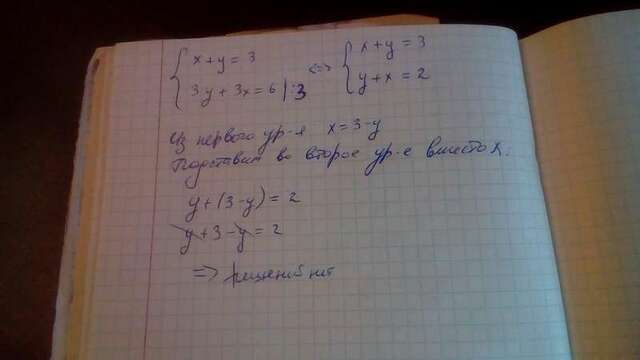 { x+y=3 <=> { x+y=3
3y+3x=6 |:3 y+x=2
Из первого ур-я x=3-y
Подставим во второе ур-е вместо x:
y+(3-y)=2
y+3-y=2
=> решений нет